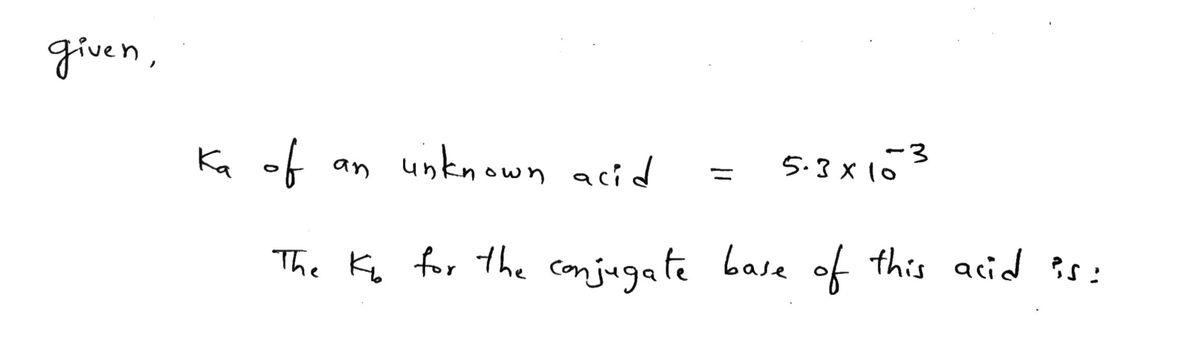 given,
Ka of an unknown acid = 5.3 x 10⁻³
The Kb for the conjugate base of this acid is: